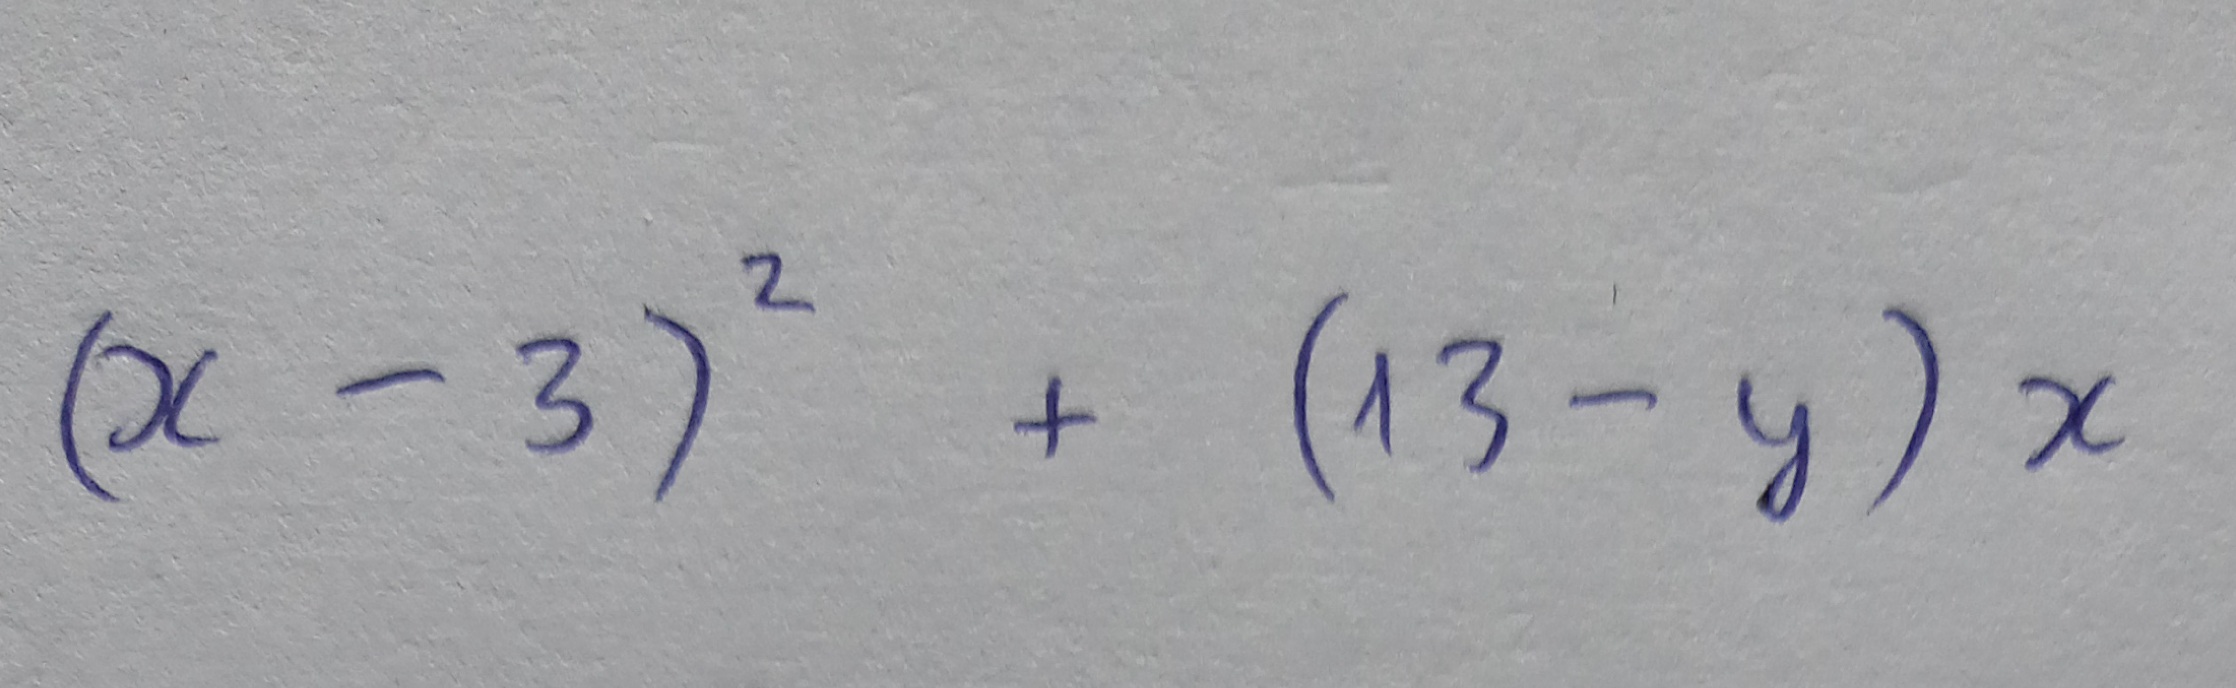 (x - 3)² + (13 - y) x